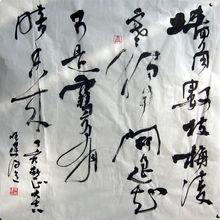 墙角數枝梅凌
寒獨自開遥知
不是雪為有
暗香来